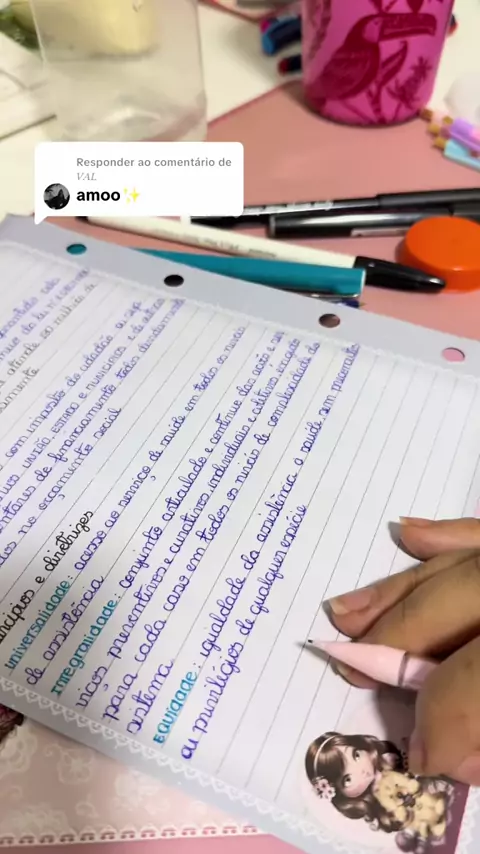 Responder ao comentário de
VAL
amoo✨
com imposto do cidadão, ou seja
união, estado e municípios, e de outras
de financiamento, todos devidamente
no orçamento social
princípios e diretrizes
universalidade: acesso ao serviço de saúde em todos os níveis
de assistência
Integralidade: conjunto articulado e contínuo das ação e ser
viços preventivos e curativos, individuais e coletivos, exigido
para cada caso em todos os níveis de complexidade do
sistema.
Equidade: igualdade da assistência a saúde, sem preconceitos
ou privilégios de qualquer espécie